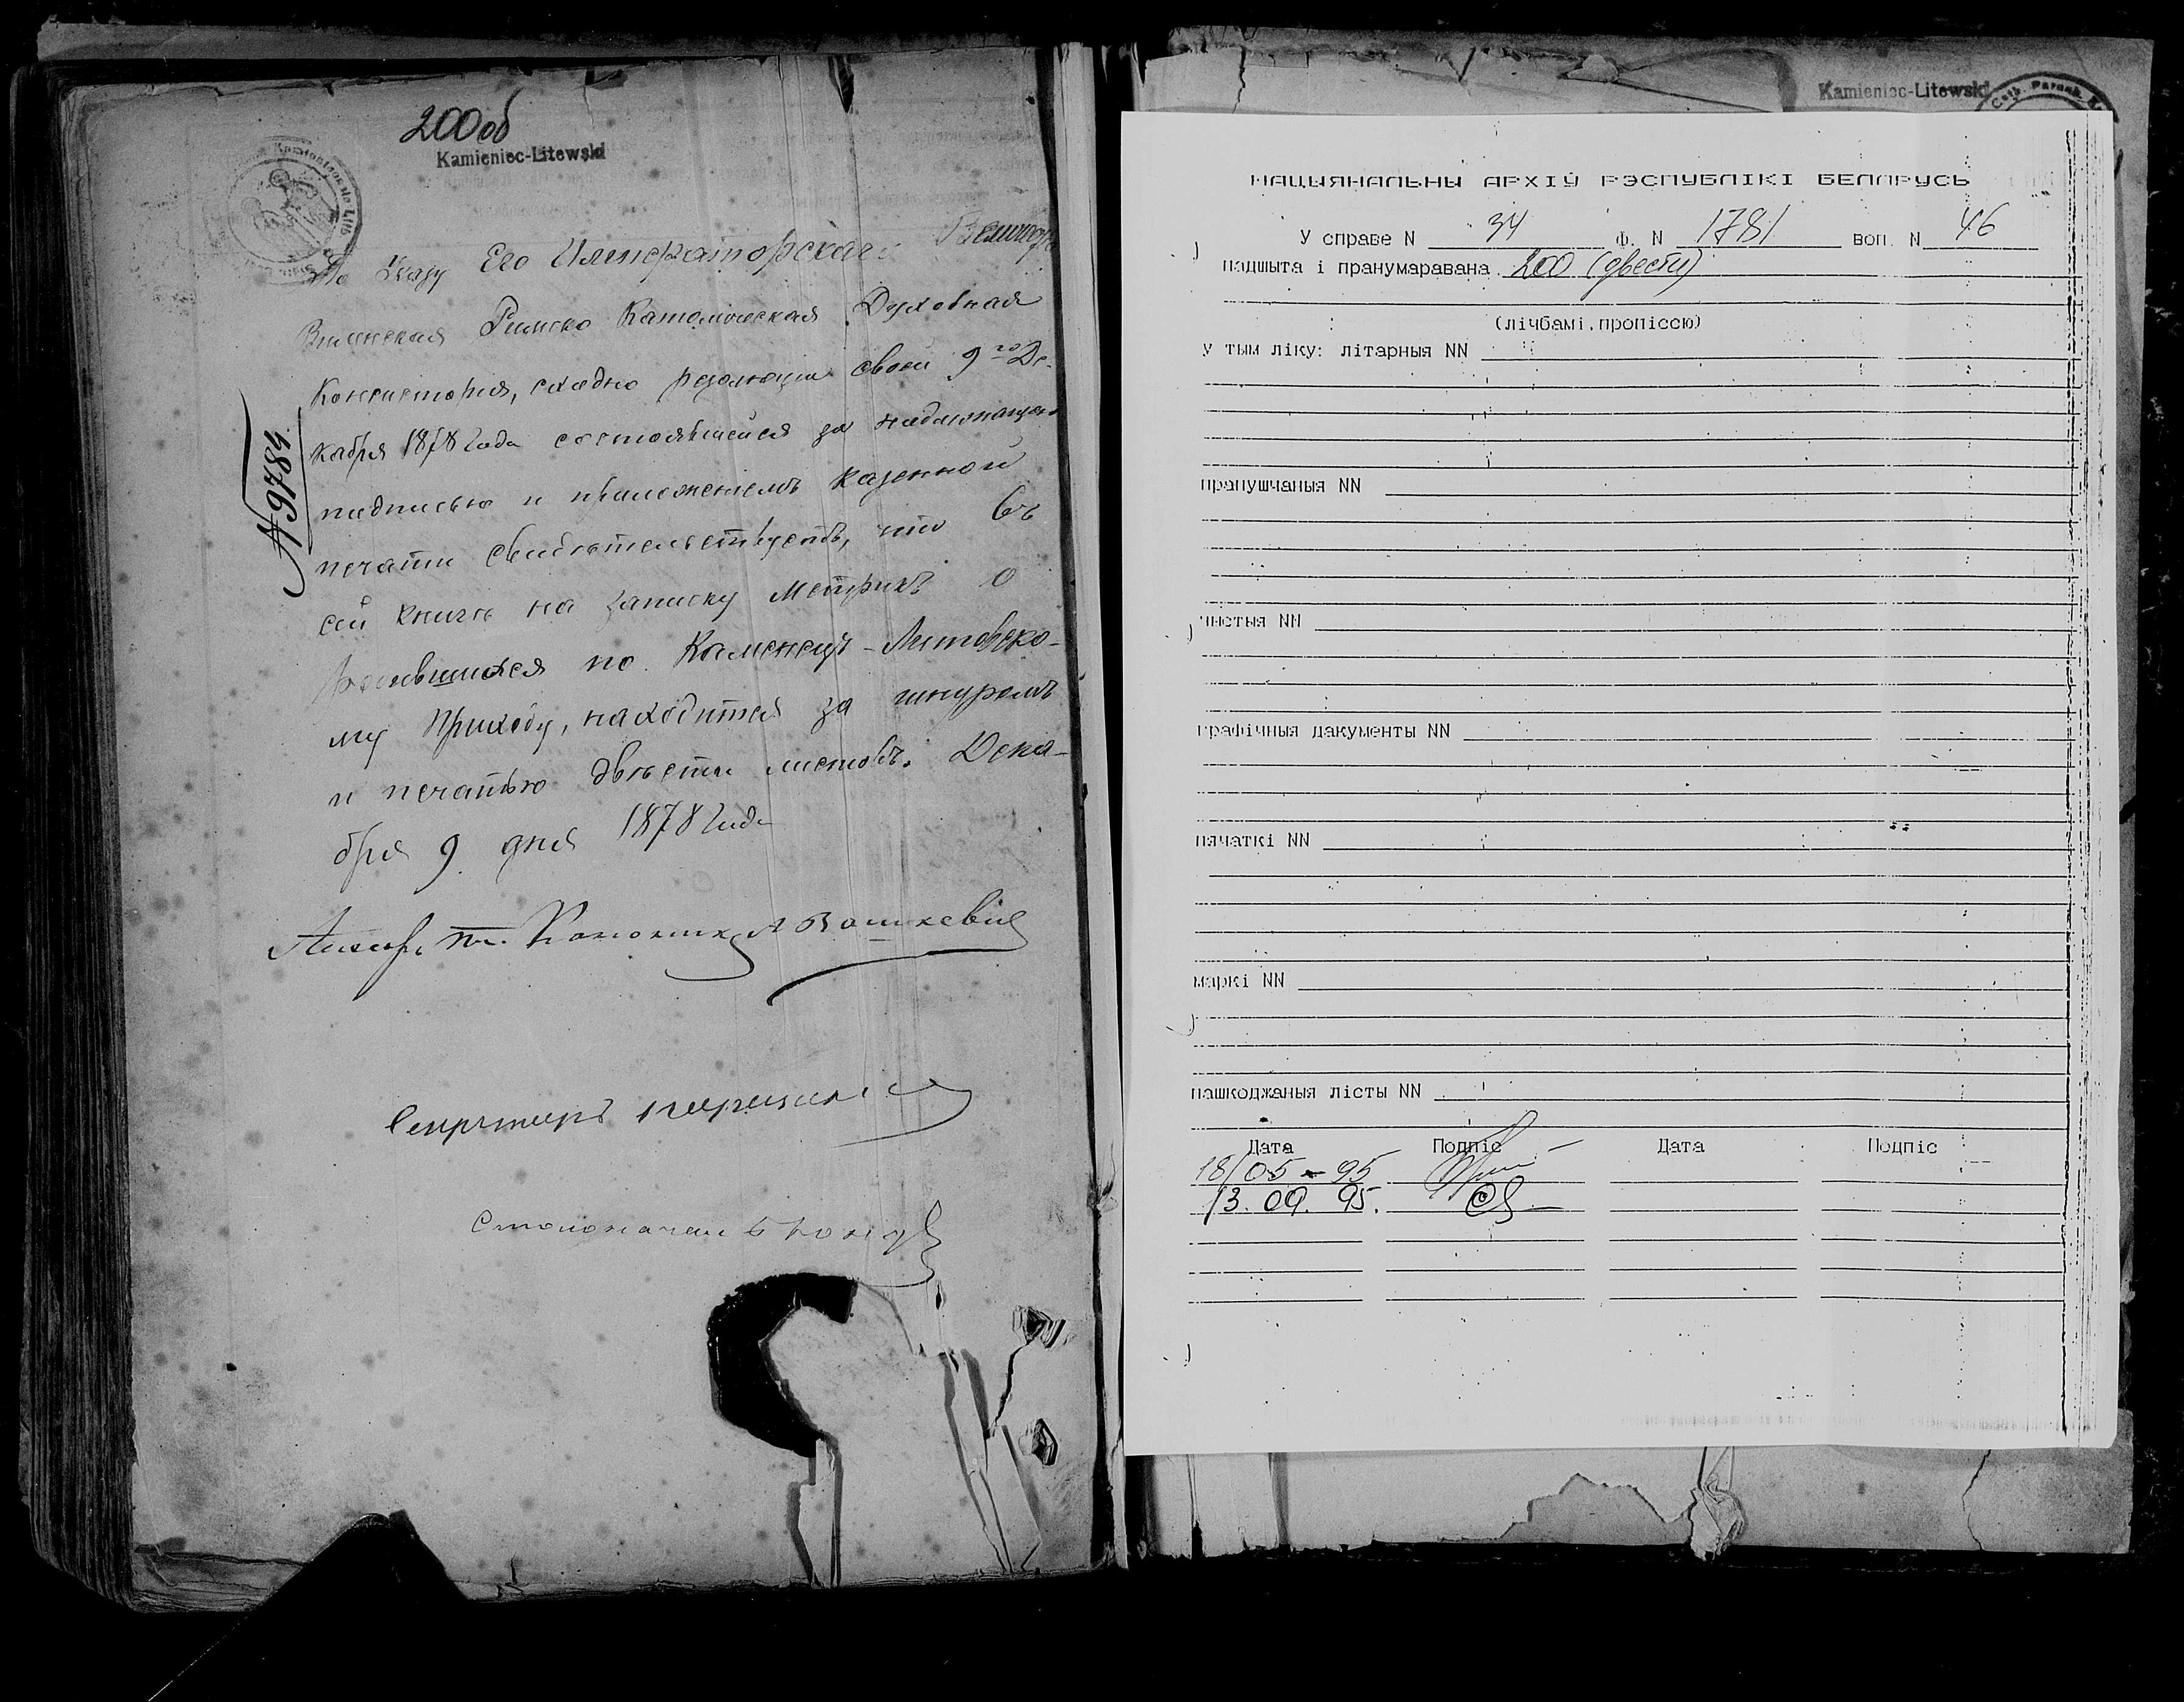 200 об
Kamieniec-Litewski
По Указу Его Императорскаго Величества
Виленская Римско Католическая Духовная
Консисторія, сходно резолюціи своей 9го Де-
кабря 1878 года состоявшейся за надлежащею
подписью и приложеніемъ казенной
печати свидѣтельствуетъ, что въ
сей книгѣ на записку метрикъ о
родившихся по Каменецъ-Литовско-
му приходу, находится за шнуромъ
и печатью двѣсти листовъ. Дека-
бря 9 дня 1878 года
№ 9784
Секретарь
Столоначальникъ
Kamieniec-Litewski
НАЦЫЯНАЛЬНЫ АРХІЎ РЭСПУБЛІКІ БЕЛАРУСЬ
У справе N 34 Ф. N 1781 воп. N 46
падшыта і пранумаравана 200 (двести)
(лічбамі, пропіссю)
у тым ліку: літарныя NN
прапушчаныя NN
чыстыя NN
графічныя дакументы NN
пячаткі NN
маркі NN
пашкоджаныя лісты NN
Дата Подпіс Дата Подпіс
18/05-95
13.09.95.